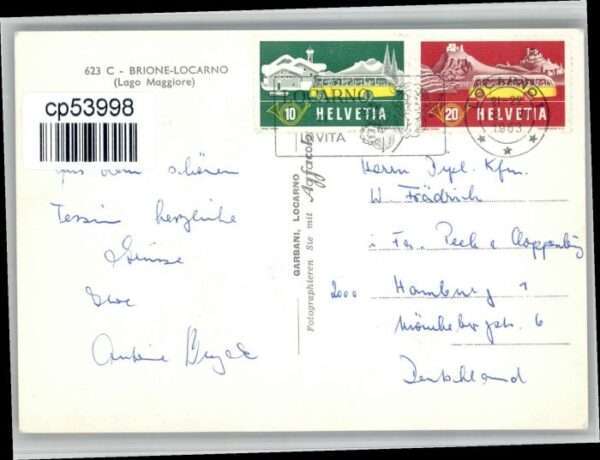 623 C - BRIONE-LOCARNO
(Lago Maggiore)
cp53998
10 HELVETIA
20 HELVETIA
LOCARNO
INVITA
1963
schönen
Tessin herzliche
Grüsse
GARBANI, LOCARNO
Fotographieren Sie mit Agfacolor
Herrn Dipl. Kfm.
W. Frädrich
i Fa. Peek & Cloppenburg
2000 Hamburg 1
Mönckebergstr. 6
Deutschland